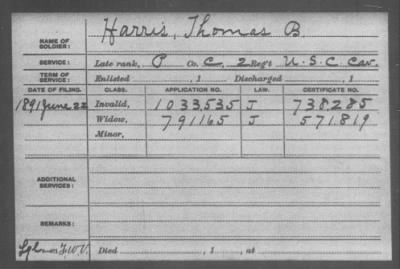 NAME OF SOLDIER: Harris, Thomas B
SERVICE: Late rank, P Co. C, 2 Reg't U.S.C Cav.
TERM OF SERVICE: Enlisted , 1 Discharged , 1
DATE OF FILING. CLASS. APPLICATION NO. LAW. CERTIFICATE NO.
1891 June 22 Invalid, 1033535 J 738285
Widow, 791165 J 571819
Minor,
ADDITIONAL SERVICES:
REMARKS:
Died , 1 , at